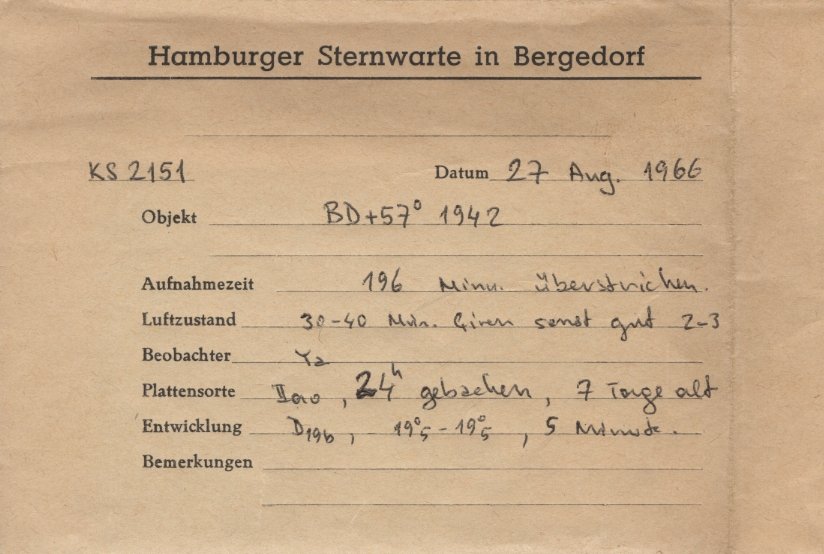 Hamburger Sternwarte in Bergedorf
KS 2151 Datum 27 Aug. 1966
Objekt BD+57° 1942
Aufnahmezeit 196 Minu. überstrichen.
Luftzustand 30-40 Min. Ciren sonst gut 2-3
Beobachter Ya
Plattensorte IIao, 24h gebacken, 7 Tage alt
Entwicklung D19b, 19°5 - 19°5, 5 Minute.
Bemerkungen